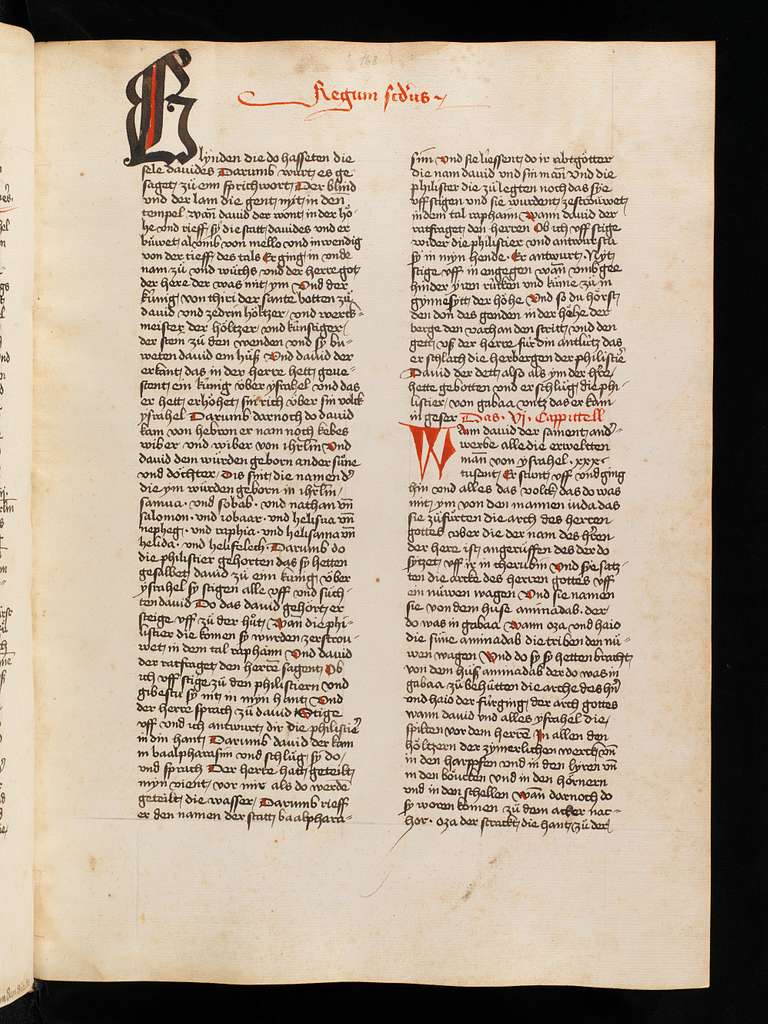 168
Regum scdus
Blynden die do hasseten die
sele dauides Darumb wurt es ge
saget zů eim sprichwort Der blind
vnd der lam die gent nyt in den
tempel wan dauid der wont in der hö-
he vnd rieff sy die statt dauides vnd er
buwet al vmb von mello vnd inwendig
von der tieff des tals Er ging in vnde
nam zů vnd wůchs vnd der herre got
der here der was mit ym Vnd der
kúnig von thiri der sante botten zů
dauid vnd zedrin höltzer vnd werck-
meister der höltzer vnd kúnstiger
der stein zů den wenden vnd sy bu-
weten dauid ein huß Vnd dauid der
erkant das in der herre hett geue-
stent ein kúnig vber ysrahel vnd das
er hett erhöhet sin rich vber sin volck
ysrahel Darumb darnoch do dauid
kam von hebron er nam noch kebes
wiber vnd wiber von ihrlm Vnd
dauid dem wurden geborn ander súne
vnd döchter Dis sint die namen d
die ym wurden geborn in ihrlm
samua vnd sobab vnd nathan vn
salomon vnd iobaar vnd helisua vn
nepheg vnd iaphia vnd helisama vn
helida vnd helifelech Darumb do
die philistier gehorten das sy hetten
gesalbet dauid zů eim kúnig vber
ysrahel sy stigen alle vff vnd sůch-
ten dauid Do das dauid gehort er
steige vff zů der hůt Wan die phi-
listier die komen sy wurden zerströu-
wet in dem tal raphaim Vnd dauid
der ratfraget den herren sagent Ob
ich vff stige zů den philistiern vnd
gibestu sy mt in myn hant Vnd
der herre sprach zů dauid Stige
vff vnd ich antwurt dir die philistie
in din hant Darumb dauid der kam
in baalpharasim vnd schlůg sy do
vnd sprach Der herre hatt geteilt
myn vient vor mir als do werde
geteilt die wasser Darumb rieff
er den namen der statt baalphara-
sim Vnd sie liessent do ir abtgötter
die nam dauid vnd sin man Vnd die
philister die zů legten noch das sye
vff stigen vnd sie wurdent zerstrouwet
in dem tal raphaim Wann dauid der
ratfraget den herren Ob ich vff stige
wider die philistier vnd antwurstu
sy in myn hende Er antwurt Nyt
stige vff in engegen wan vmb gee
hinder yren rucken vnd kúme zů in
gynnesytt der höhe Vnd so du hörst
den don des genden in der höhe der
berge den vachan den stritt vnd den
gett vß der herre fúr din antlutz das
er schlach die herbergen der philistie
Dauid der dett also als ym der hre
hette gebotten vnd er schlůg die phi-
listier von gabaa vntz das er kam
in geser Das VI Cappittell
Wann dauid der sament and
werbe alle die erwelten
man von ysrahel xxx
tusent Er stunt vff vnd ging
hin vnd alles das volck das do was
mit ym von den mannen iuda das
sie zů fůrten die arch des herren
gottes vber die der nam des hren
der here ist angerúffen des der do
sytzet vff ir in cherubin Vnd sye satz-
ten die arcke des herren gottes vff
ein núwen wagen Vnd sie namen
sie von dem huse aminadas der
do was in gabaa Wann oza vnd haio
die súne aminadab die triben den nú-
wen wagen Vnd do sy sy hetten bracht
von dem huß aminadas der do was in
gabaa zů behútten die arche des hn
vnd haio der fúrging der arch gottes
wann dauid vnd alles ysrahel die
spilten vor dem herren In allen den
höltzern der zymerlichen werch vn
in den harpffen vnd in den lyren vn
in den böucken vnd in den hörnern
vnd in den schellen Wan dornoch do
sy woren komen zů dem acker nac-
hor oza der strackt die hant zů der